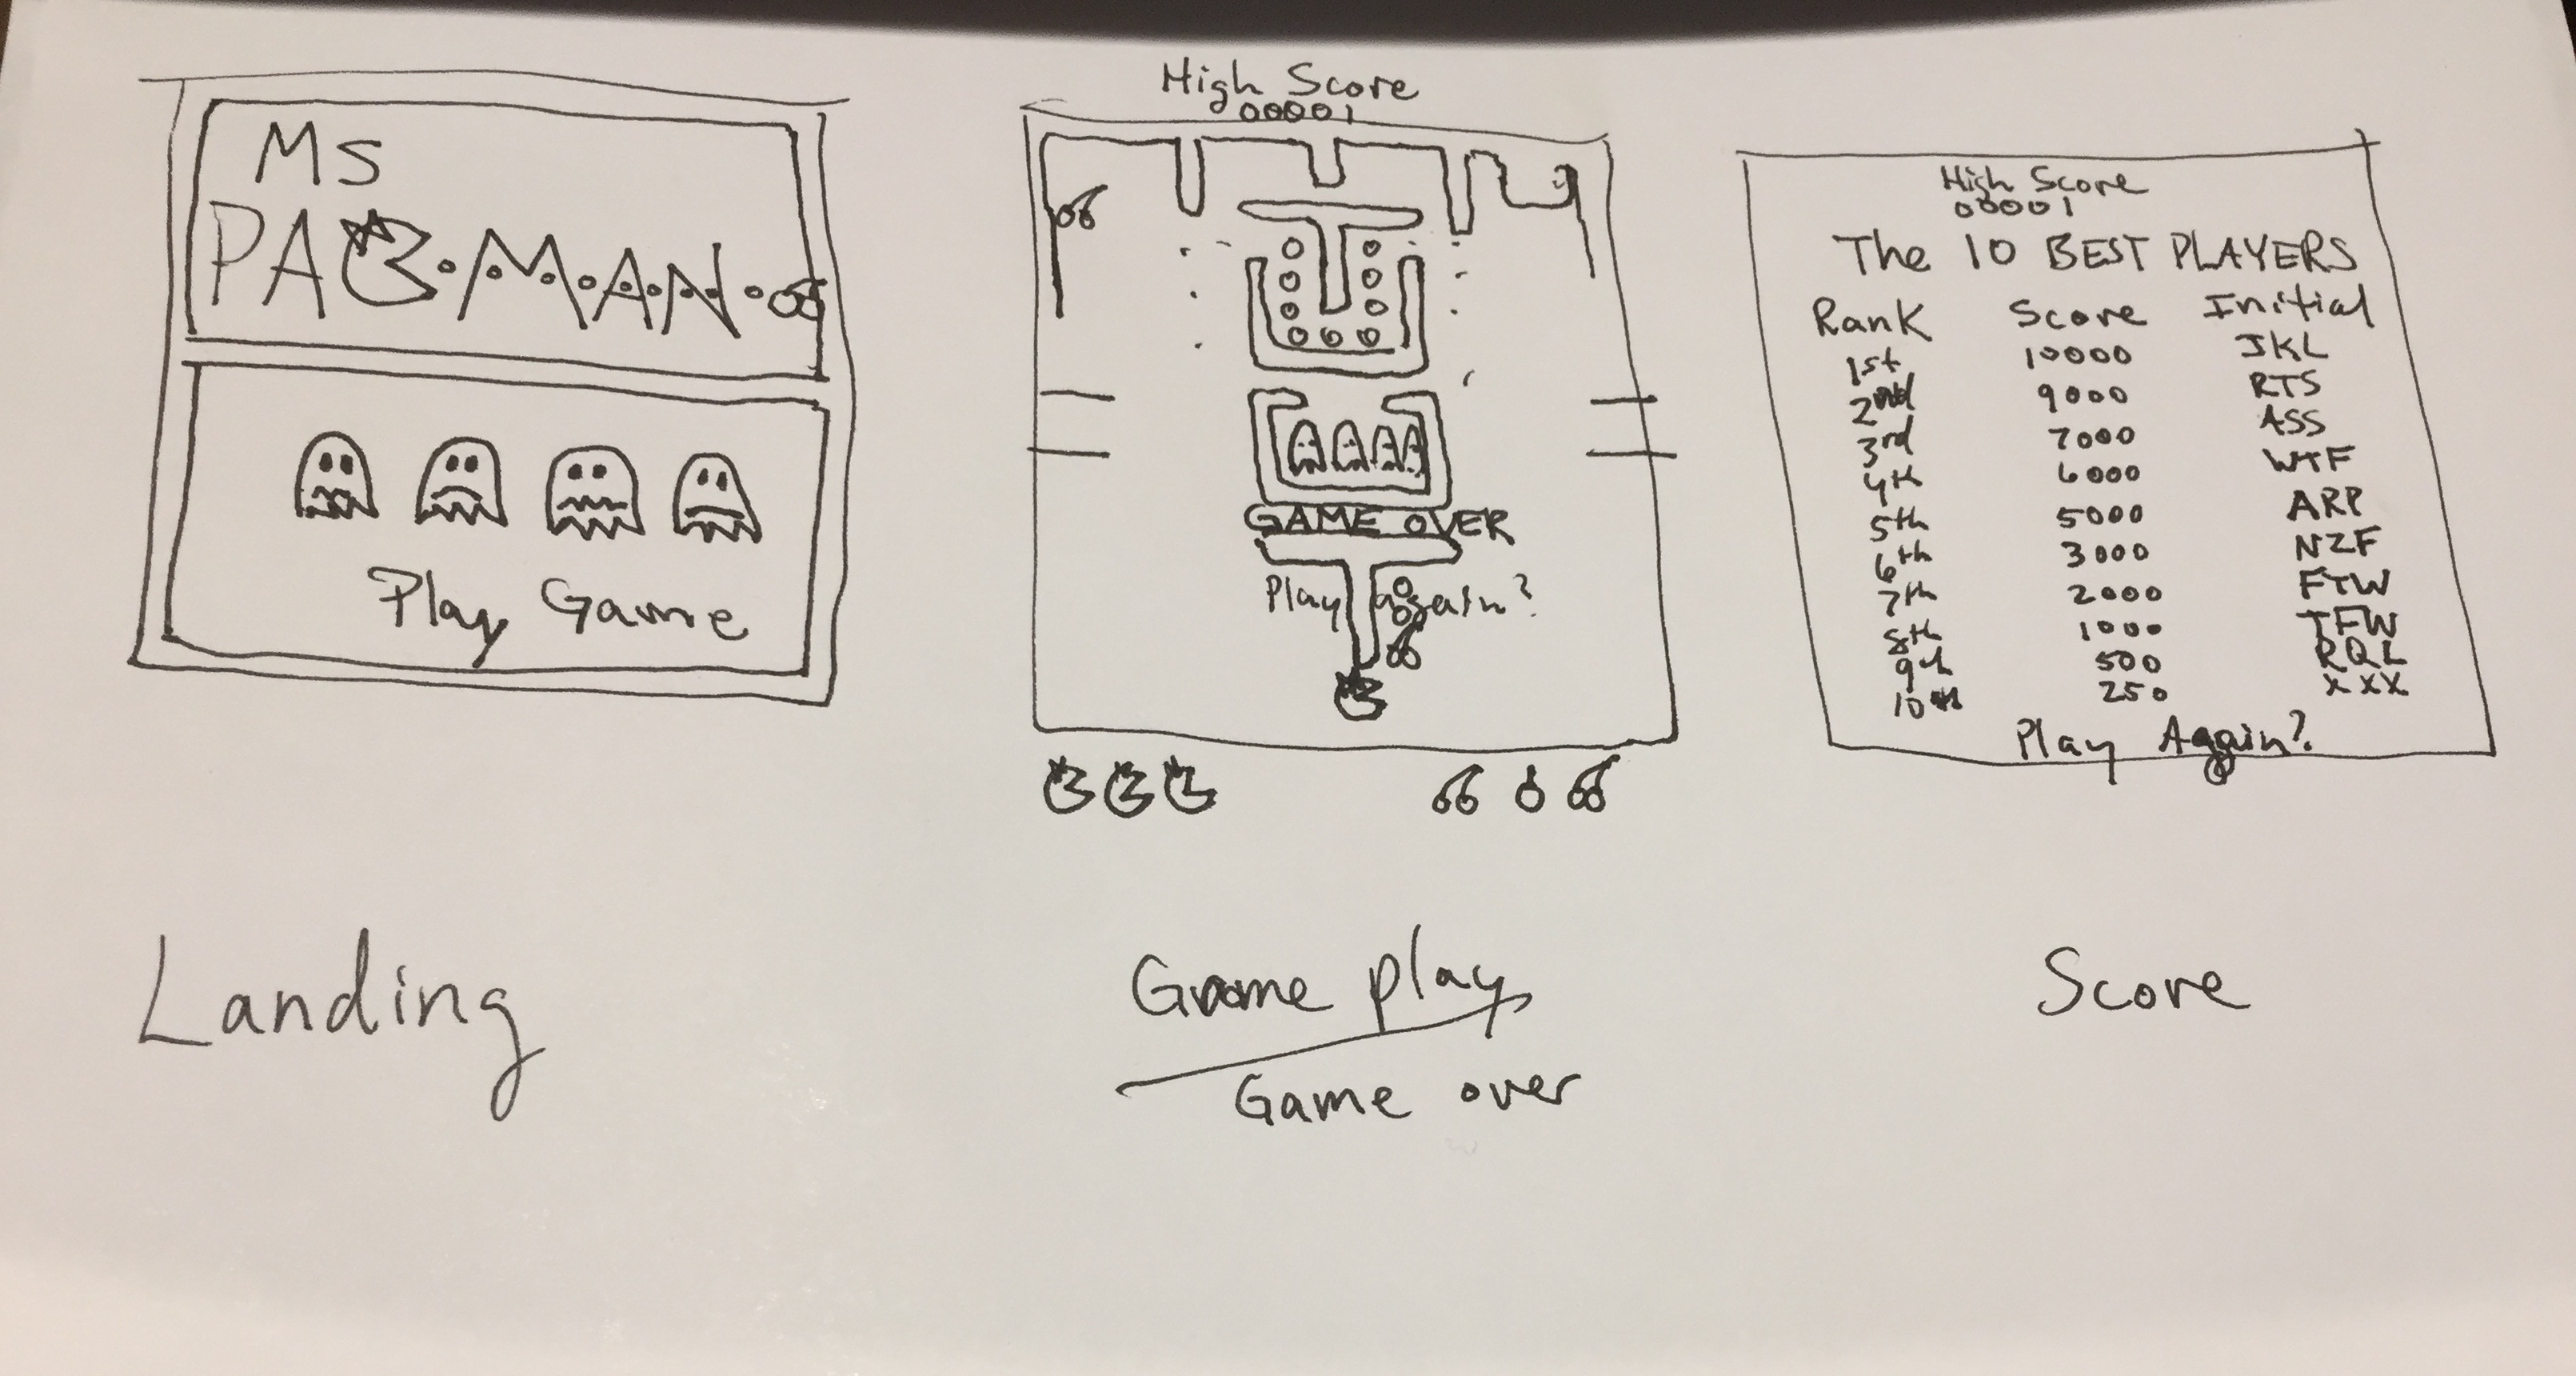 MS
PAC·M·A·N·
Play Game
Landing
High Score
00001
GAME OVER
Play again?
Game play
Game over
High Score
00001
The 10 BEST PLAYERS
Rank Score Initial
1st 10000 JKL
2nd 9000 RTS
3rd 7000 ASS
4th 6000 WTF
5th 5000 ARP
6th 3000 NZF
7th 2000 FTW
8th 1000 TFW
9th 500 RQL
10th 250 XXX
Play Again?
Score